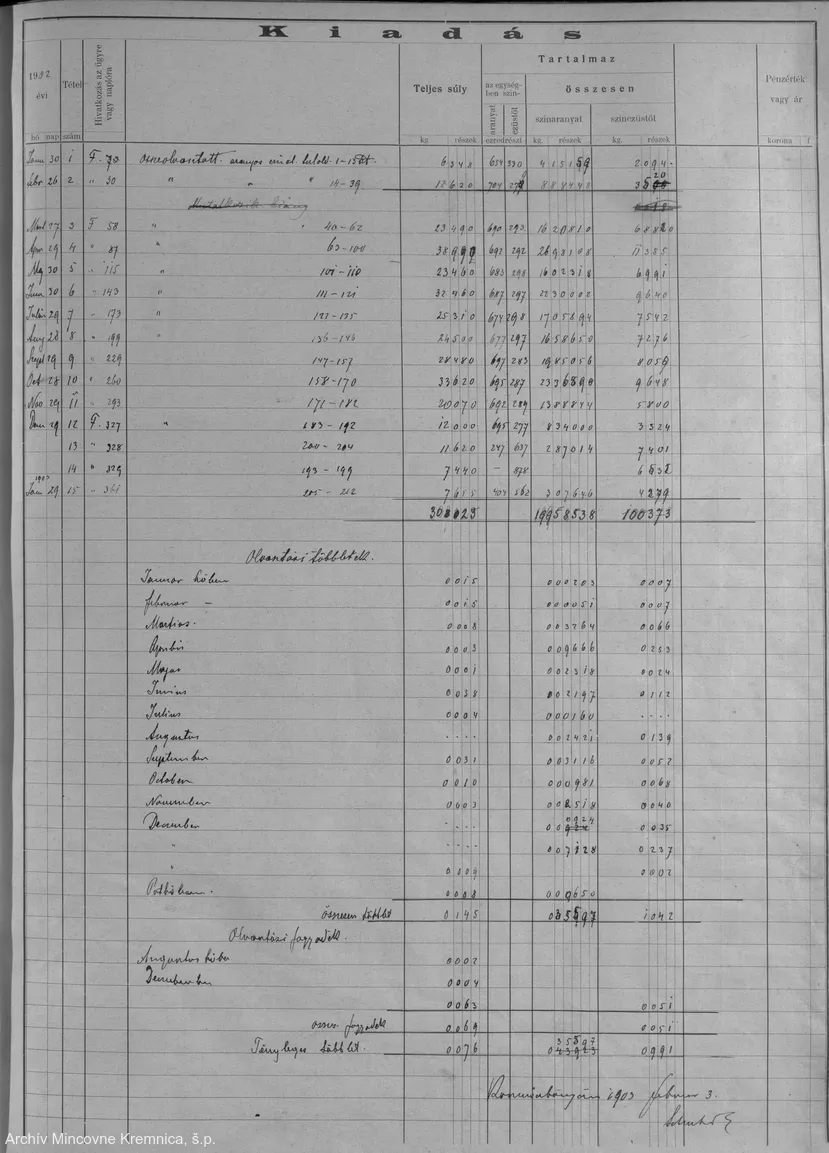 Kiadás
1902 évi
hó nap
Tétel szám
Hivatkozás az ügyre vagy naplóra
Teljes súly
kg. részek
Tartalmaz
az egységben szin-
aranyat ezüstöt
ezredrészi
összesen
szinaranyat
kg. részek
szinezüstöt
kg. részek
Pénzérték vagy ár
korona f
Jan 30 1 F. 73 1-15 6348 654 330 415159 2094
Febr 26 2 " 30 " " " 14-39 12620 704 279 888448 3520
Mart 27 3 F 58 " " 40-62 23490 690 293 1620810 68820
Apr 29 4 " 87 " 63-100 38990 692 292 2698108 11385
Maj 30 5 " 115 " 101-110 23460 683 298 1602318 6991
Juni 30 6 " 143 " 111-121 32460 687 297 2230002 9640
Julius 29 7 " 173 " 122-135 25310 674 298 1705894 7542
Aug 28 8 " 199 " 136-146 24500 677 297 1658650 7276
Szept 29 9 " 229 147-157 28480 697 283 1985056 8059
Oct 28 10 " 260 158-170 33620 695 287 2336590 9648
Nov 29 11 " 293 171-182 20070 692 289 1388844 5800
Dec 29 12 F. 327 " 183-192 12000 695 277 834000 3324
13 " 328 200-204 11620 247 637 287014 7401
14 " 329 193-199 7440 - 878 6532
1903
Jan 29 15 " 361 205-212 7655 404 562 307646 4279
300023 19958538 100373
Olvasztási többletek.
Januar hóban 0015 000203 0007
Februar - 0015 000051 0007
Martius. 0008 003764 0066
Aprilis 0003 009666 0253
Majus 0001 002318 0024
Junius 0038 002197 0112
Julius 0004 000160 ....
Augustus .... 002421 0139
September 0031 003116 0052
October 0010 000981 0068
November 0003 002518 0040
December .... 0924 0035
" .... 007128 0237
" 0009 0002
0008 000650
összesen többlet 0145 035597 1042
Olvasztási fogyaték.
Augustus hóban 0002
Decemberben 0004
0063 0051
össz. fogyaték 0069 0051
Tényleges többlet. 0076 35597 0991
Körmöczbányán 1903 februar 3.
Archív Mincovne Kremnica, š.p.